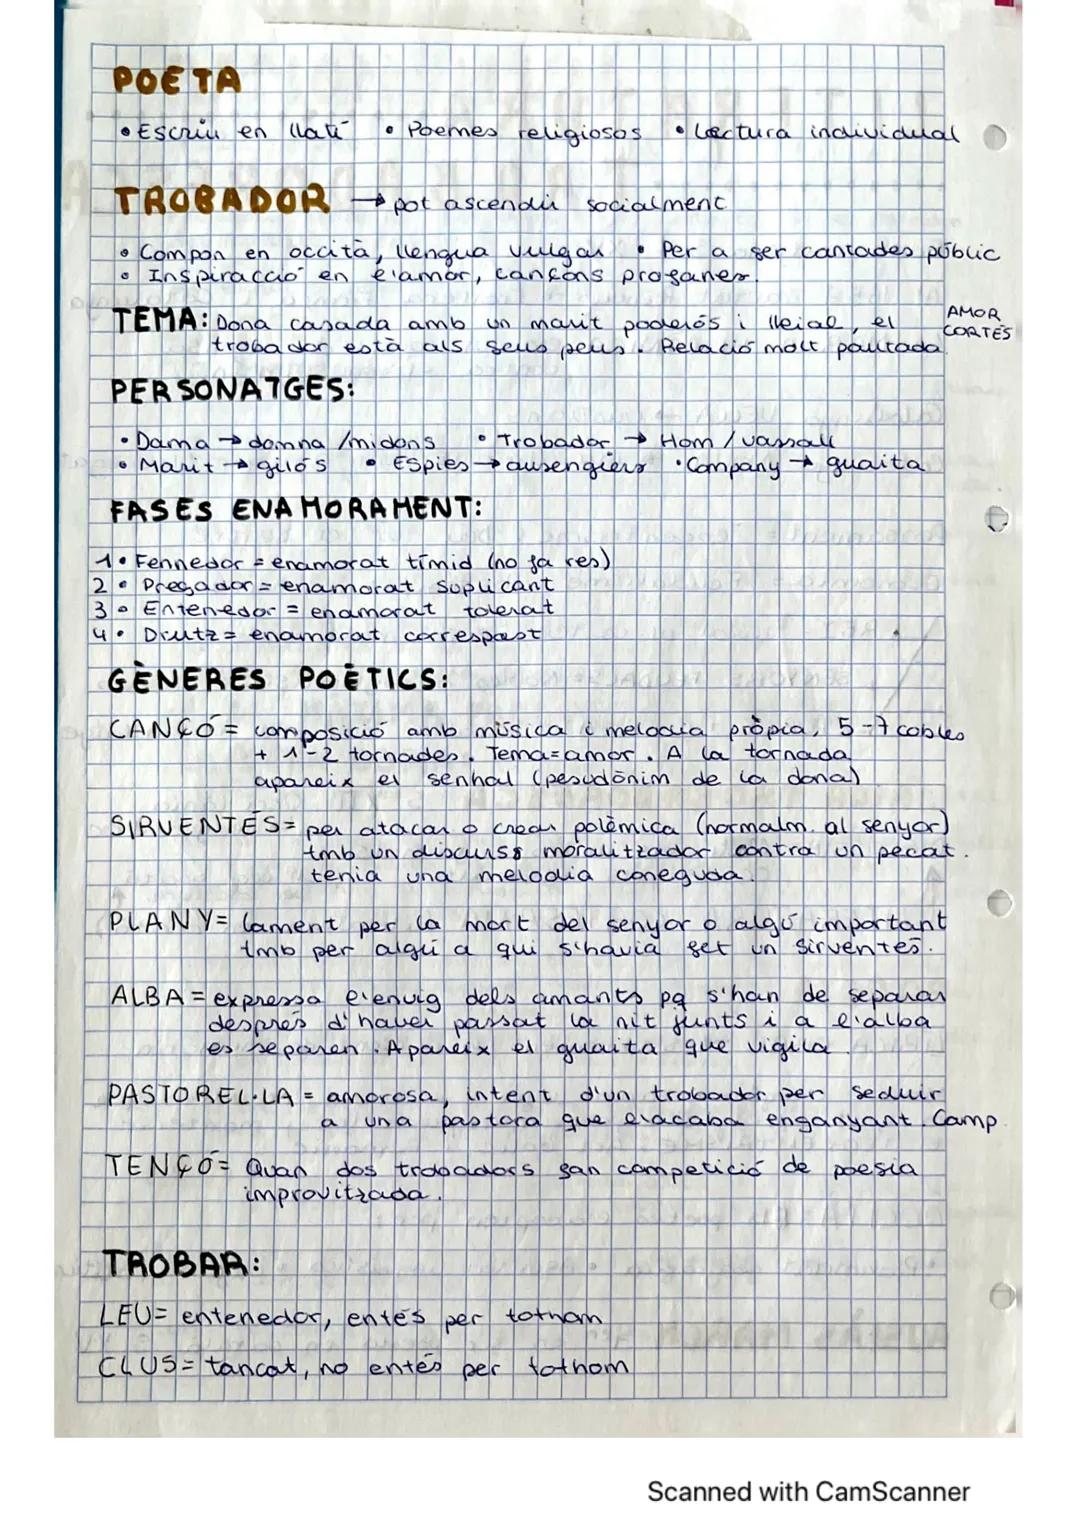 POETA
• Escriu en llatí • Poemes religiosos • Lectura individual
TROBADOR → pot ascendir socialment
• Compon en occità, llengua vulgar • Per a ser cantades públic
• Inspiracció en l'amor, cançons profanes.
TEMA: Dona casada amb un marit poderós i lleial, el AMOR
trobador està als seus peus. Relació molt pautada. CORTÈS
PERSONATGES:
• Dama → domna / midons • Trobador → Hom / vassall
• Marit → gilós • Espies → lausengiers • Company → guaita
FASES ENAMORAMENT:
1 • Fennedor = enamorat tímid (no fa res)
2 • Pregador = enamorat suplicant
3 • Entenedor = enamorat tolerat
4 • Drutz = enamorat correspost
GÈNERES POÈTICS:
CANÇÓ = composició amb música i melodia pròpia, 5-7 cobles
+ 1-2 tornades. Tema=amor. A la tornada
apareix el senhal (pesudònim de la dona)
SIRVENTÈS = per atacar o crear polèmica (normalm. al senyor)
tmb un discurs moralitzador contra un pecat.
tenia una melodia coneguda.
PLANY = lament per la mort del senyor o algú important
tmb per algú a qui s'havia fet un sirventès.
ALBA = expressa l'enuig dels amants pq s'han de separar
després d'haver passat la nit junts i a l'alba
es separen. Apareix el guaita que vigila.
PASTOREL·LA = amorosa, intent d'un trobador per seduir
a una pastora que l'acaba enganyant. Camp.
TENÇÓ = Quan dos trobadors fan competició de poesia
improvitzada.
TROBAR:
LEU = entenedor, entès per tothom
CLUS = tancat, no entès per tothom
Scanned with CamScanner